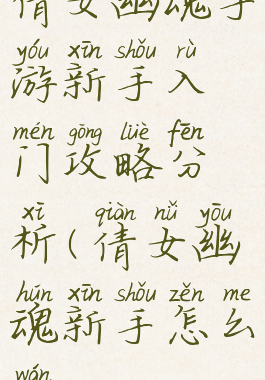 倩女幽魂手
yóu xīn shǒu rù
游新手入
mén gōng lüè fēn
门攻略分
xī qiàn nǚ yōu
析(倩女幽
hún xīn shǒu zěn me
魂新手怎么
wán